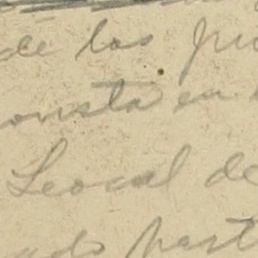 de los pu
onsta en
Leocal de
ado part